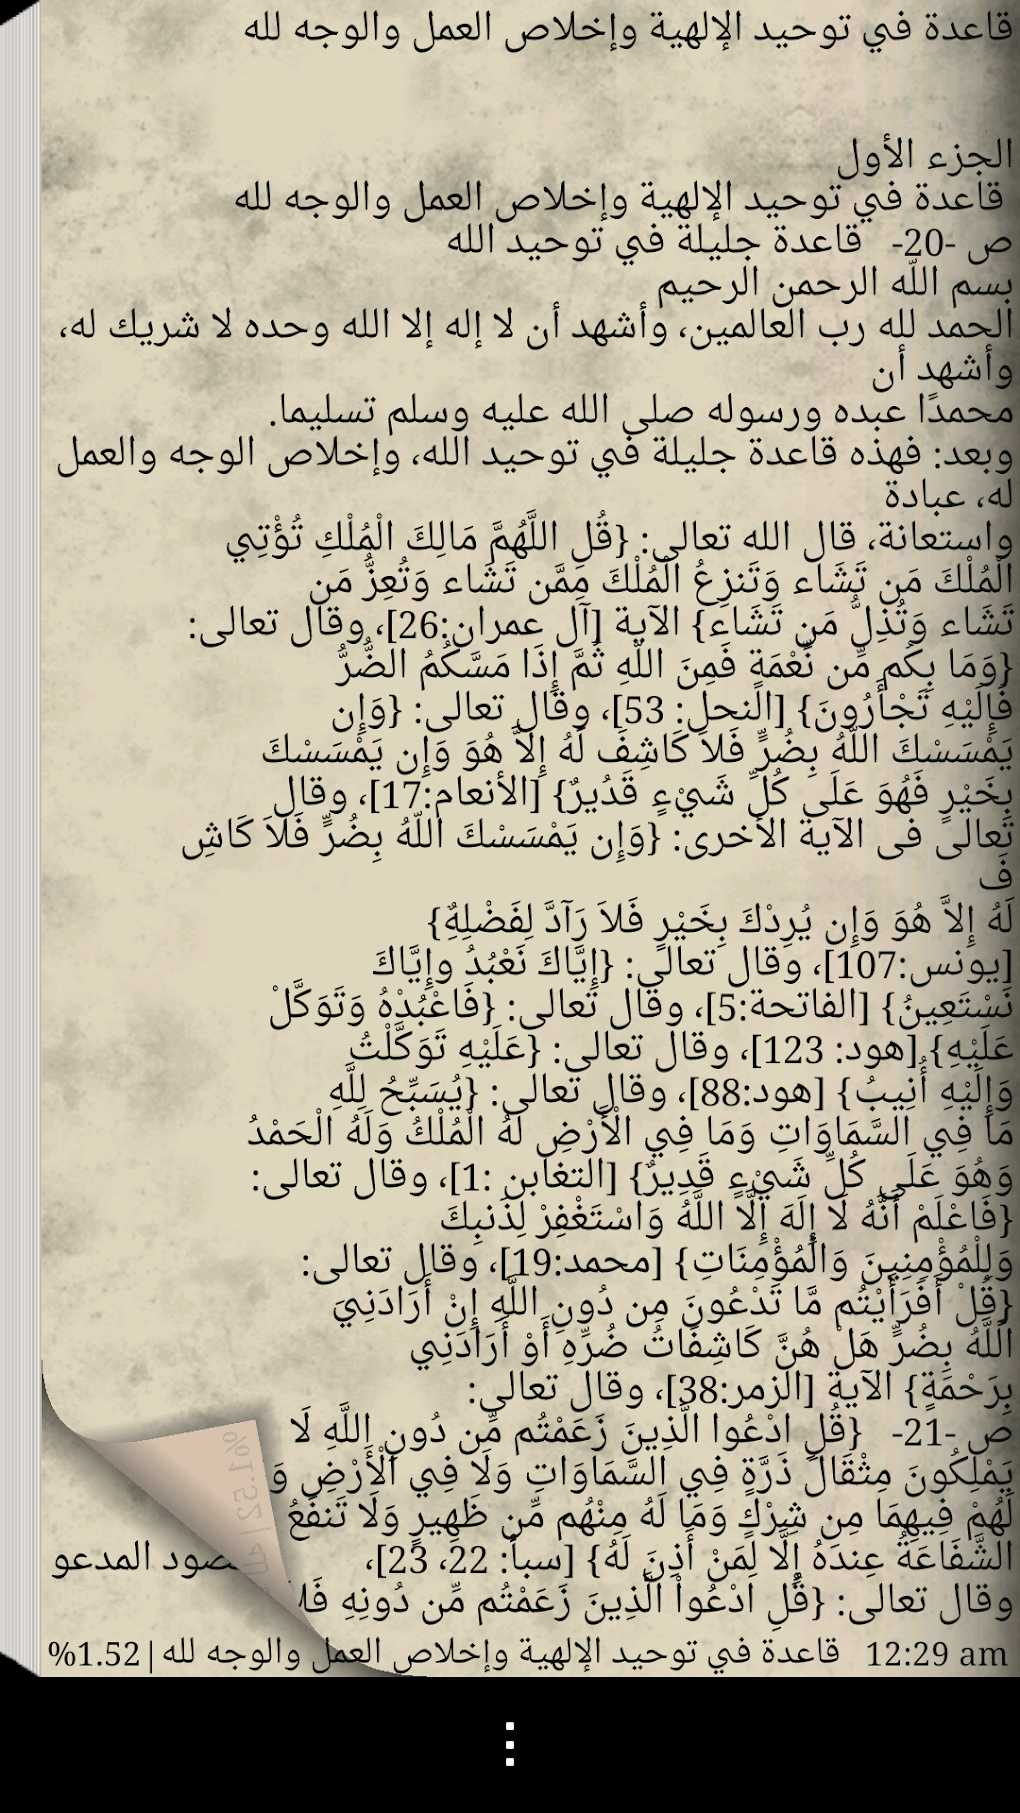 قاعدة في توحيد الإلهية وإخلاص العمل والوجه لله
الجزء الأول
قاعدة في توحيد الإلهية وإخلاص العمل والوجه لله
ص -20- قاعدة جليلة في توحيد الله
بسم الله الرحمن الرحيم
الحمد لله رب العالمين، وأشهد أن لا إله إلا الله وحده لا شريك له،
وأشهد أن
محمدًا عبده ورسوله صلى الله عليه وسلم تسليما.
وبعد: فهذه قاعدة جليلة في توحيد الله، وإخلاص الوجه والعمل
له، عبادة
واستعانة، قال الله تعالى: {قُلِ اللَّهُمَّ مَالِكَ الْمُلْكِ تُؤْتِي
الْمُلْكَ مَن تَشَاء وَتَنزِعُ الْمُلْكَ مِمَّن تَشَاء وَتُعِزُّ مَن
تَشَاء وَتُذِلُّ مَن تَشَاء} الآية [آل عمران:26]، وقال تعالى:
{وَمَا بِكُم مِّن نِّعْمَةٍ فَمِنَ اللّهِ ثُمَّ إِذَا مَسَّكُمُ الضُّرُّ
فَإِلَيْهِ تَجْأَرُونَ} [النحل: 53]، وقال تعالى: {وَإِن
يَمْسَسْكَ اللّهُ بِضُرٍّ فَلاَ كَاشِفَ لَهُ إِلاَّ هُوَ وَإِن يَمْسَسْكَ
بِخَيْرٍ فَهُوَ عَلَى كُلِّ شَيْءٍ قَدُيرٌ} [الأنعام:17]، وقال
تعالى فى الآية الأخرى: {وَإِن يَمْسَسْكَ اللّهُ بِضُرٍّ فَلاَ كَاشِ
فَ
لَهُ إِلاَّ هُوَ وَإِن يُرِدْكَ بِخَيْرٍ فَلاَ رَآدَّ لِفَضْلِهِ}
[يونس:107]، وقال تعالى: {إِيَّاكَ نَعْبُدُ وإِيَّاكَ
نَسْتَعِينُ} [الفاتحة:5]، وقال تعالى: {فَاعْبُدْهُ وَتَوَكَّلْ
عَلَيْهِ} [هود: 123]، وقال تعالى: {عَلَيْهِ تَوَكَّلْتُ
وَإِلَيْهِ أُنِيبُ} [هود:88]، وقال تعالى: {يُسَبِّحُ لِلَّهِ
مَا فِي السَّمَاوَاتِ وَمَا فِي الْأَرْضِ لَهُ الْمُلْكُ وَلَهُ الْحَمْدُ
وَهُوَ عَلَى كُلِّ شَيْءٍ قَدِيرٌ} [التغابن :1]، وقال تعالى:
{فَاعْلَمْ أَنَّهُ لَا إِلَهَ إِلَّا اللَّهُ وَاسْتَغْفِرْ لِذَنبِكَ
وَلِلْمُؤْمِنِينَ وَالْمُؤْمِنَاتِ} [محمد:19]، وقال تعالى:
{قُلْ أَفَرَأَيْتُم مَّا تَدْعُونَ مِن دُونِ اللَّهِ إِنْ أَرَادَنِيَ
اللَّهُ بِضُرٍّ هَلْ هُنَّ كَاشِفَاتُ ضُرِّهِ أَوْ أَرَادَنِي
بِرَحْمَةٍ} الآية [الزمر:38]، وقال تعالى:
ص -21- {قُلِ ادْعُوا الَّذِينَ زَعَمْتُم مِّن دُونِ اللَّهِ لَا
يَمْلِكُونَ مِثْقَالَ ذَرَّةٍ فِي السَّمَاوَاتِ وَلَا فِي الْأَرْضِ وَ
لَهُمْ فِيهِمَا مِن شِرْكٍ وَمَا لَهُ مِنْهُم مِّن ظَهِيرٍ وَلَا تَنفَعُ
الشَّفَاعَةُ عِندَهُ إِلَّا لِمَنْ أَذِنَ لَهُ} [سبأ: 22، 23]، المدعو
وقال تعالى: {قُلِ ادْعُواْ الَّذِينَ زَعَمْتُم مِّن دُونِهِ
12:29 am قاعدة في توحيد الإلهية وإخلاص العمل والوجه لله | 1.52%